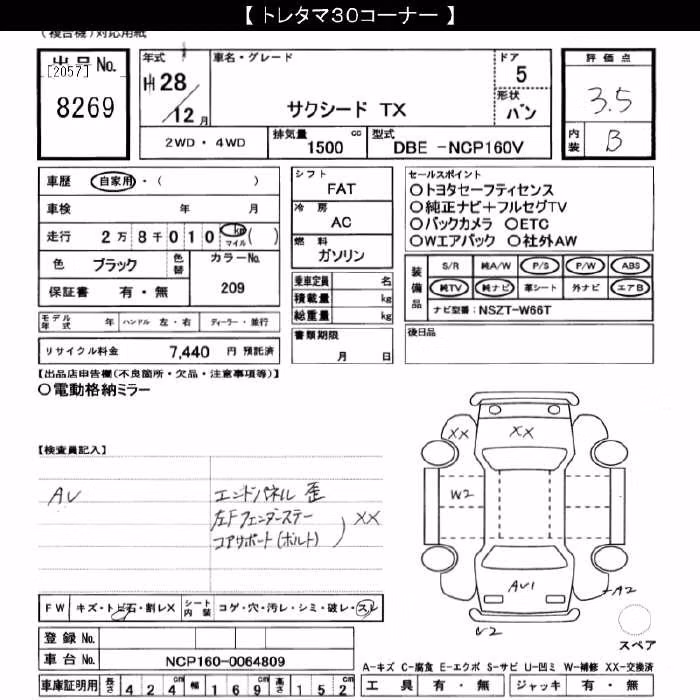 【 トレタマ30コーナー 】
(複合機)対応用紙
出品No.
[2057]
8269
年式
H28
/12月
車名・グレード
サクシード TX
ドア
5
形状
バン
2WD・4WD
排気量 cc
1500
型式
DBE -NCP160V
評価点
3.5
内装
B
車歴 自家用・( )
車検 年 月
走行 2万8千010 km マイル ( )
色 ブラック 色替 カラーNo.
保証書 有・無 209
モデル年式 年 ハンドル 左・右 ディーラー・並行
リサイクル料金 7,440 円 預託済
シフト
FAT
冷房
AC
燃料
ガソリン
乗車定員 名
積載量 kg
総重量 kg
書類期限
月 日
セールスポイント
○トヨタセーフティセンス
○純正ナビ+フルセグTV
○バックカメラ ○ETC
○Wエアバック ○社外AW
装備品
S/R 純A/W P/S P/W ABS
純TV 純ナビ 革シート 外ナビ エアB
ナビ型番:NSZT-W66T
後日品
【出品店申告欄(不良箇所・欠品・注意事項等)】
○電動格納ミラー
【検査員記入】
AV
エンドパネル 歪
左Fフェンダーステー
コアサポート(ボルト)
XX
XX
XX
W2
AU1
A2
U2
スペア
FW キズ・トビ石・割レX シート内装 コゲ・穴・汚レ・シミ・破レ・スレ
登録 No.
車台 No. NCP160-0064809
車庫証明用 長さ 424cm 幅 169cm 高さ 152cm
A-キズ C-腐食 E-エクボ S-サビ U-凹ミ W-補修 XX-交換済
工具 有・無 ジャッキ 有・無